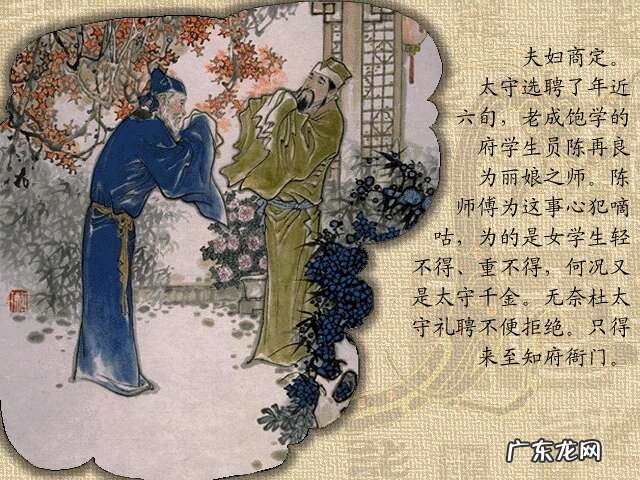 夫妇商定。
太守选聘了年近
六旬，老成饱学的
府学生员陈再良
为丽娘之师。陈
师傅为这事心犯嘀
咕，为的是女学生轻
不得、重不得，何况又
是太守千金。无奈杜太
守礼聘不便拒绝。只得
来至知府衙门。
广东龙网